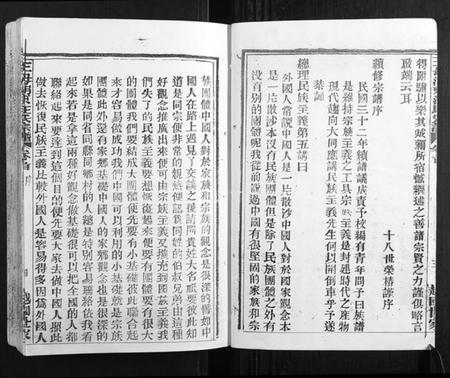 得附驥以樂其成爾所當繼續述之善諸宗賢之力謹僅略言
啟端云耳
十八世榮禧謹序
續修宗譜序
民國三十二年續譜議成責予校編有青年問予曰族譜
是維持宗族主義之工具宗族主義是封建時代之產物
現代趨向大同應講民族主義先生何以開倒車乎予遂
恭誦
總理民族主義第五講曰
外國人常說中國人是一片散沙中國人對於國家觀念本
是一片散沙本沒有民族團體但是除了民族團體之外有
沒有別的團體呢我從前說過中國有很堅固的家族和宗
族團體中國人對於家族和宗族的觀念是很深的譬如中
國人在路上遇見了交談之後請問貴姓大名祇要彼此知
道是同宗便非常的親熱便認為同姓的伯叔兄弟由這種
好觀念推廣出來便可由宗族主義擴充到國族主義我
們失了的民族主義要想恢復起來便要有團體要有很大
的團體我們要結成大團體便先要有小基礎彼此聯合起
來才容易做成功我們中國可以利用的小基礎就是宗族
團體此外還有家鄉基礎中國人的家鄉觀念也是很深的
如果是同省同縣同鄉村的人總是特別容易聯絡依我看
起來若是拿這兩種好觀念做基礎很可以把全國的人都
聯絡起來要達到這個目的便先要大家去做中國人照此
做去恢復民族主義比較外國人是容易得多因為外國人